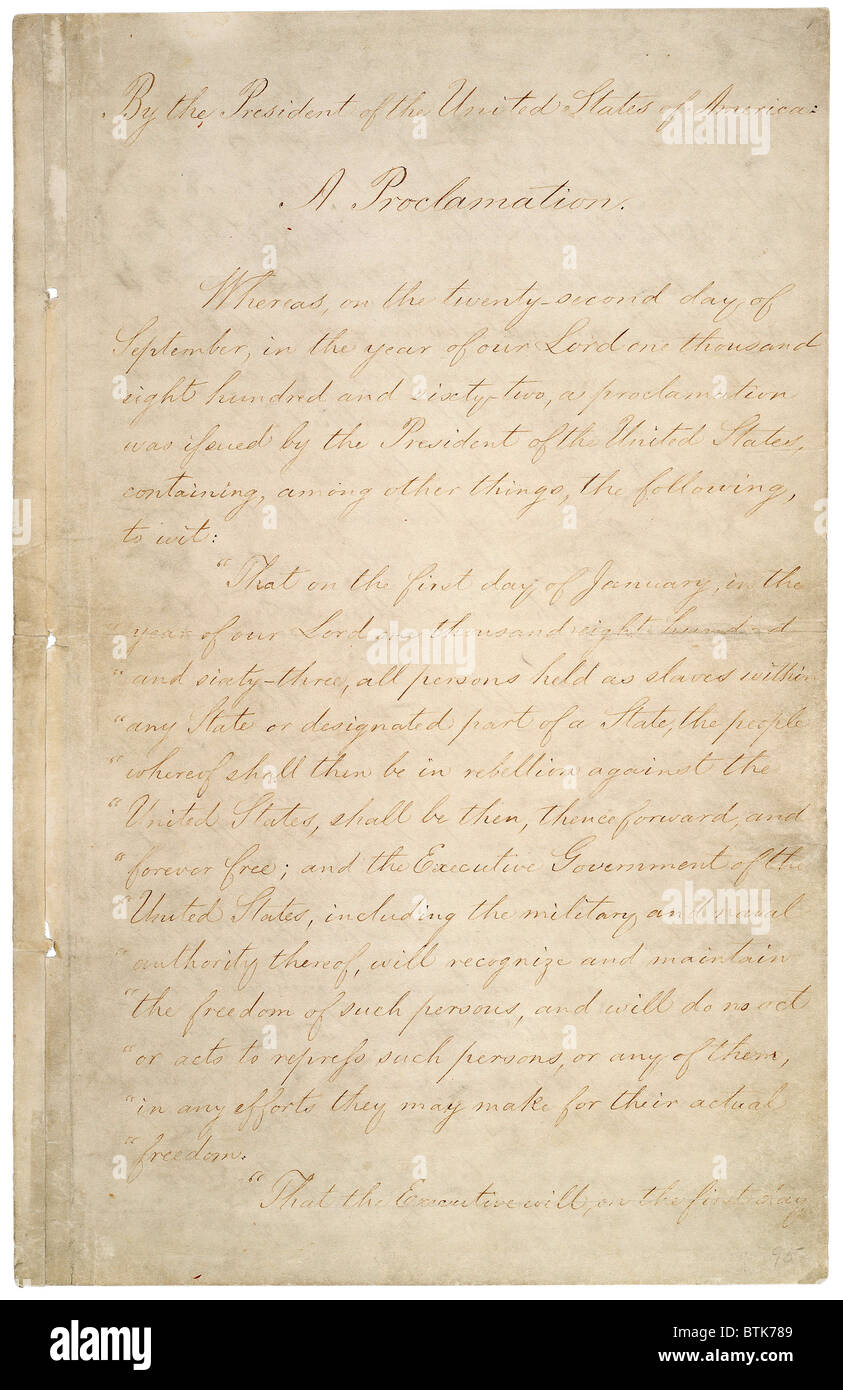 By the President of the United States of America:
A Proclamation.
Whereas, on the twenty-second day of
September, in the year of our Lord one thousand
eight hundred and sixty-two, a proclamation
was issued by the President of the United States,
containing, among other things, the following,
to wit:
"That on the first day of January, in the
"year of our Lord one thousand eight hundred
"and sixty-three, all persons held as slaves within
"any State or designated part of a State, the people
"whereof shall then be in rebellion against the
"United States, shall be then, thenceforward, and
"forever free; and the Executive Government of the
"United States, including the military and naval
"authority thereof, will recognize and maintain
"the freedom of such persons, and will do no act
"or acts to repress such persons, or any of them,
"in any efforts they may make for their actual
"freedom.
"That the Executive will, on the first day
95
alamy
alamy
Image ID: BTK789
www.alamy.com